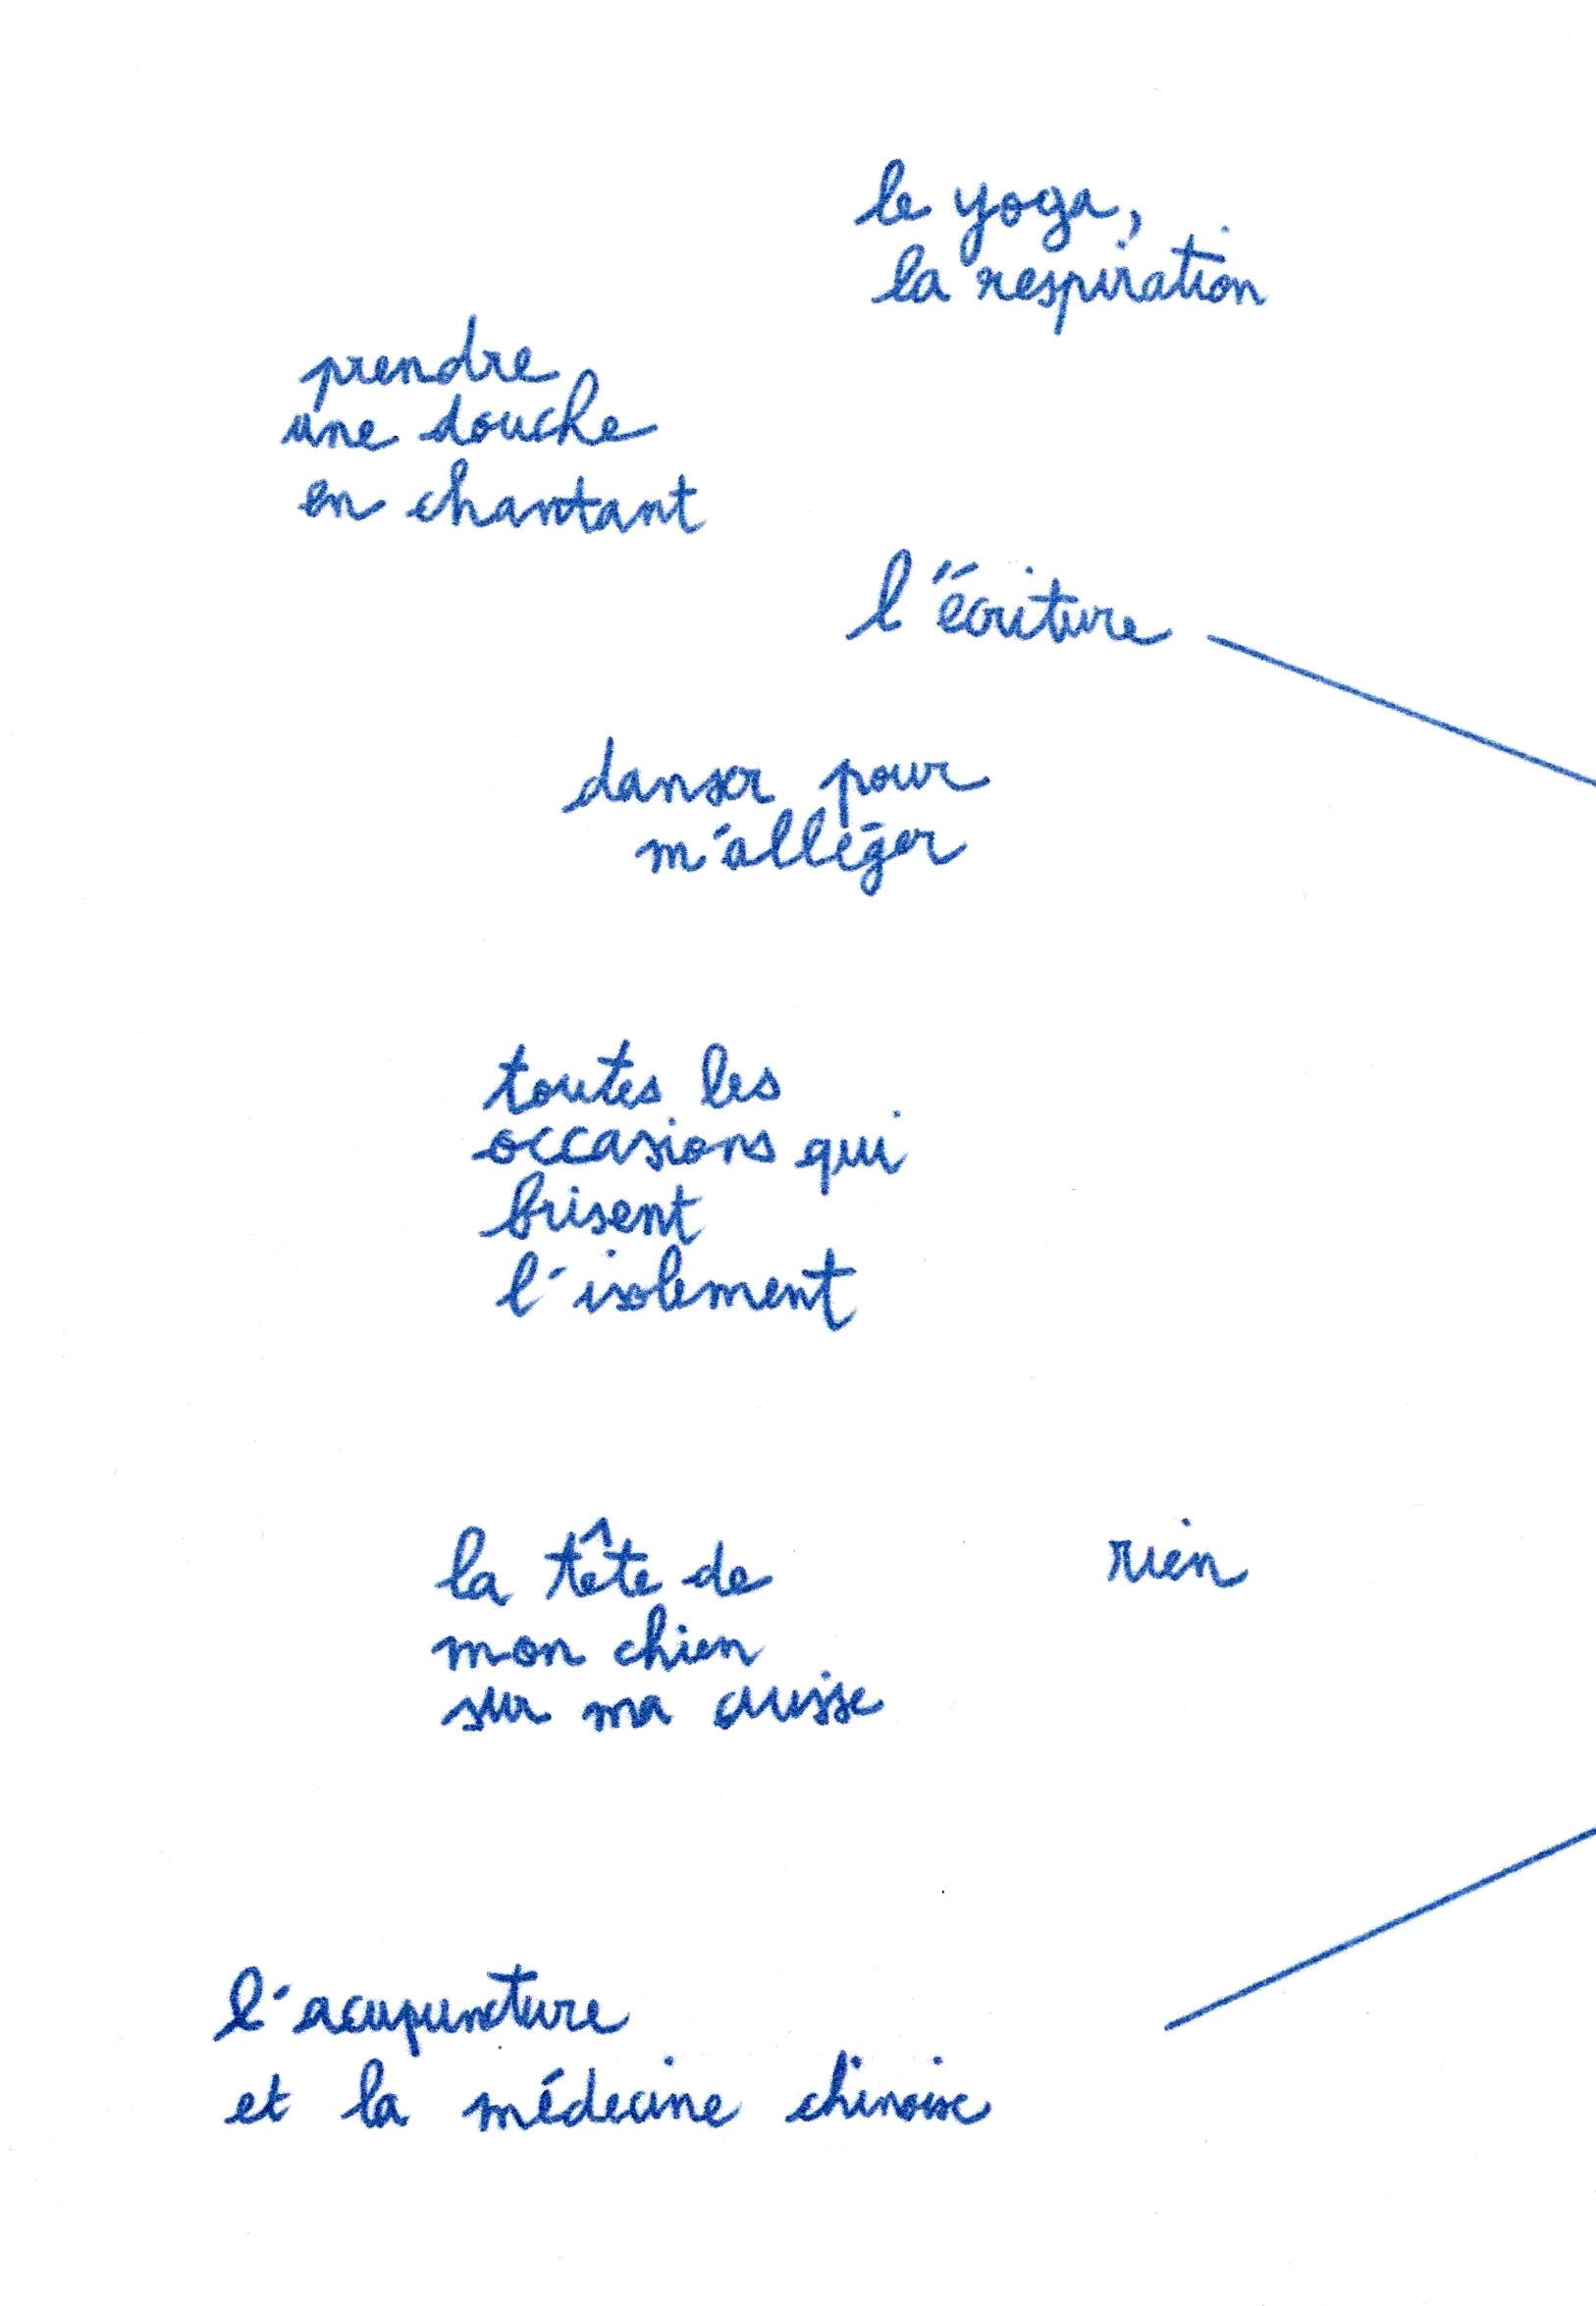 le yoga,
la respiration
prendre
une douche
en chantant
l'écriture
danser pour
m'alléger
toutes les
occasions qui
brisent
l'isolement
la tête de
mon chien
sur ma cuisse
rien
l'acupuncture
et la médecine chinoise